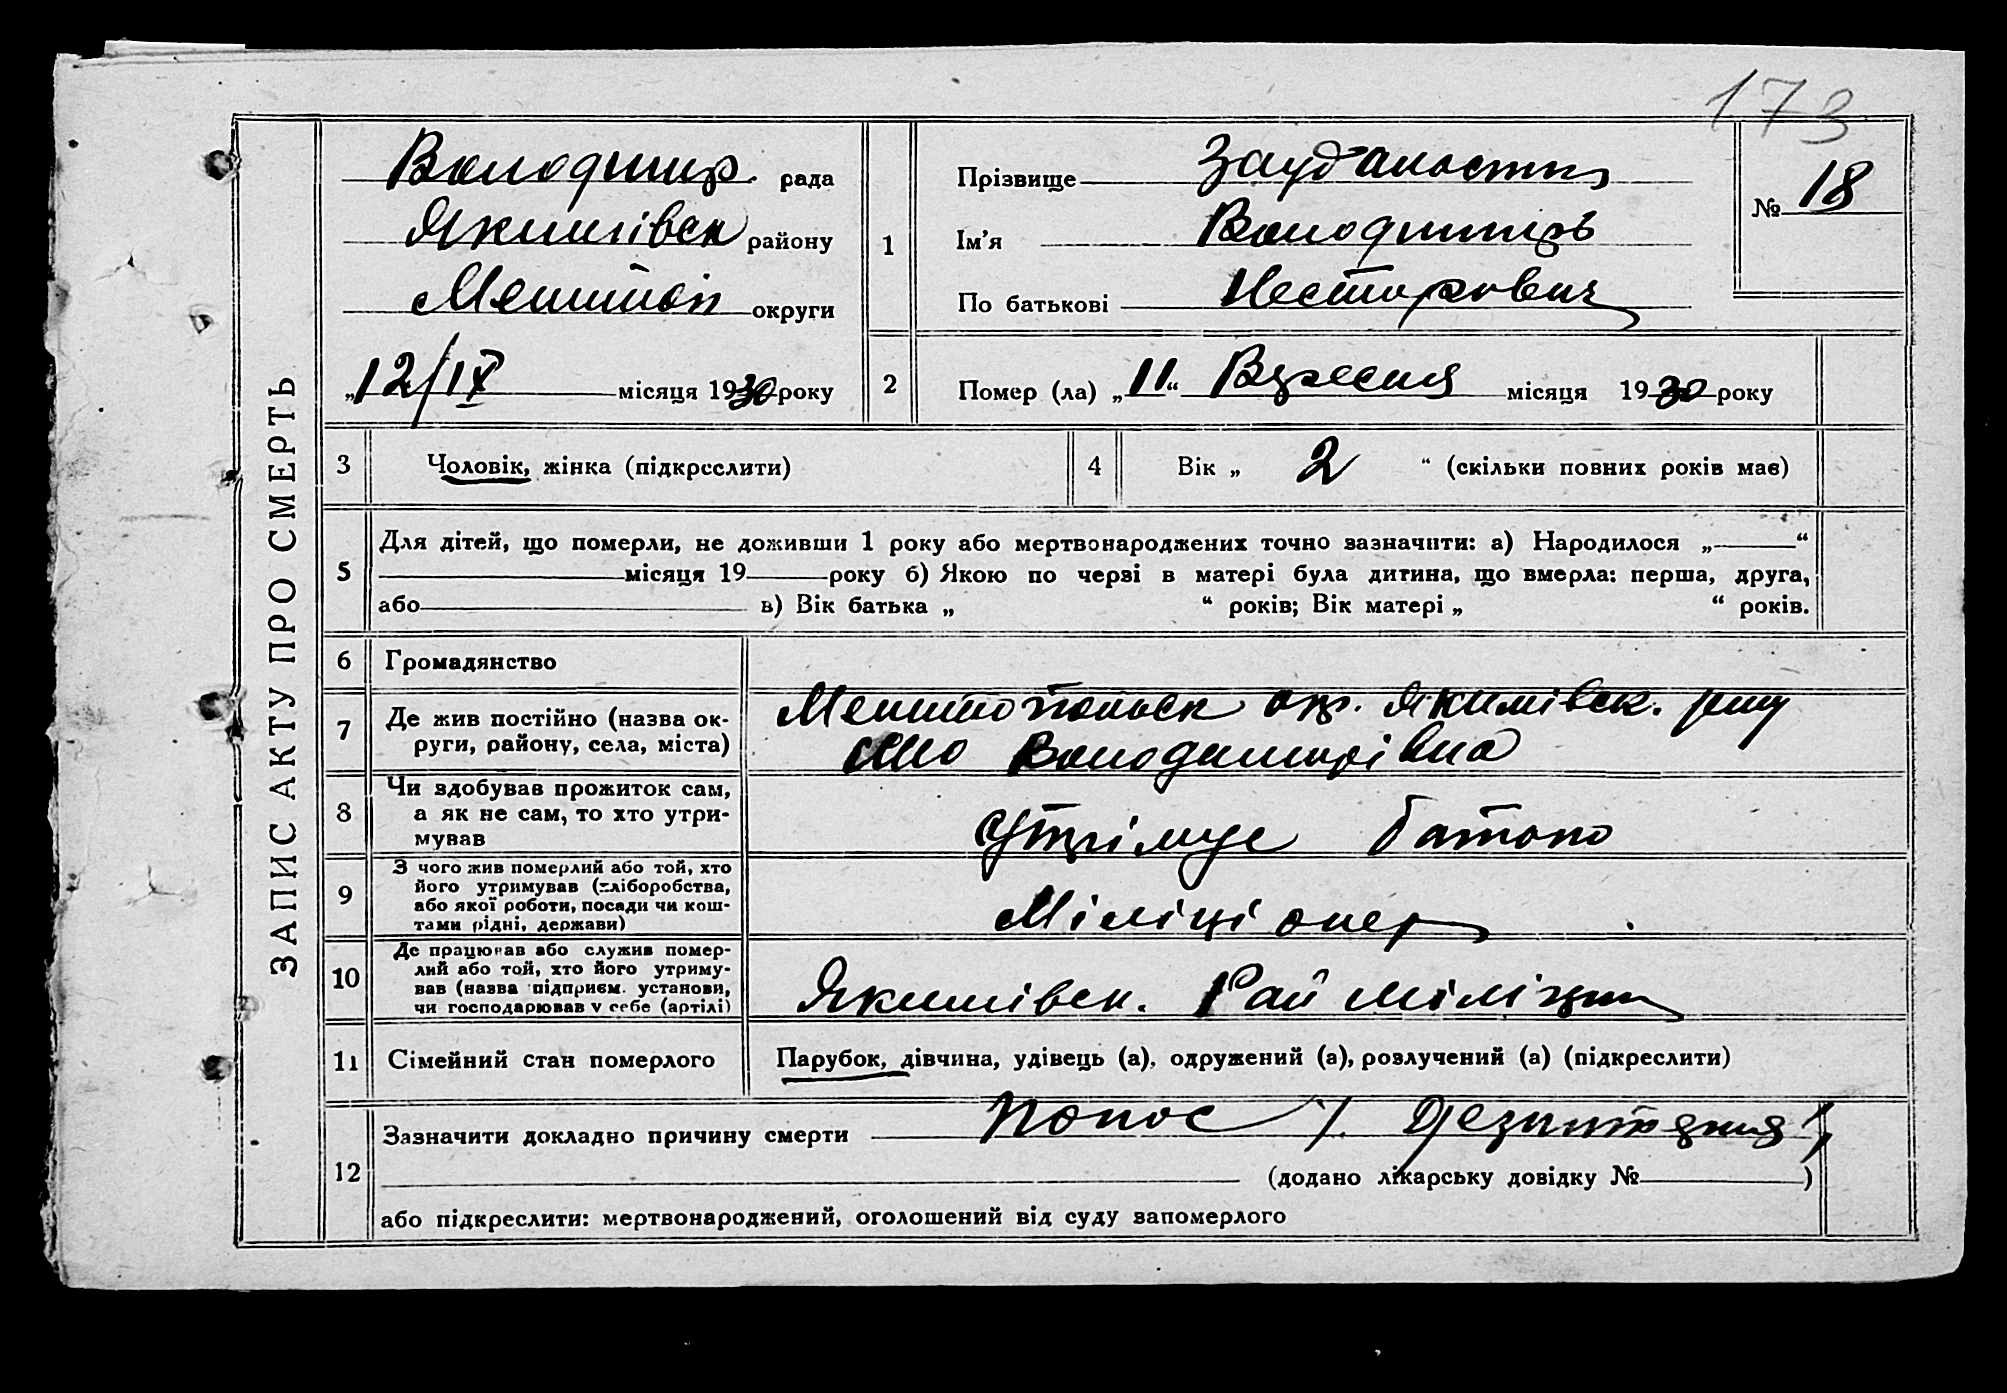 173
ЗАПИС АКТУ ПРО СМЕРТЬ
Володимир. рада
Якимівськ району
Мелитоп округи
„12/IX місяця 1930 року
1
Прізвище
Ім'я Володимиръ
По батькові Несторович
№ 18
2
Помер (ла) „11“ Вересня місяця 1930 року
3
Чоловік, жінка (підкреслити)
4
Вік „ 2 “ (скільки повних років має)
5
Для дітей, що померли, не доживши 1 року або мертвонароджених точно зазначити: а) Народилося „ “
місяця 19 року б) Якою по черві в матері була дитина, що вмерла: перша, друга,
або в) Вік батька „ “ років; Вік матері „ “ років.
6
Громадянство
7
Де жив постійно (назва ок-
руги, району, села, міста)
Мелитопольск окр. Якимівск. рну
Володимирівка
8
Чи здобував прожиток сам,
а як не сам, то хто утри-
мував
Утрімує батько
9
З чого жив померлий або той, хто
його утримував (хліборобства,
або якої роботи, посади чи кош-
тами рідні, держави)
Міліціонер
10
Де працював або служив помер-
лий або той, хто його утриму-
вав (назва підприєм. установи,
чи господарював у себе (артілі)
Якимівск. Рай міліции
11
Сімейний стан померлого
Парубок, дівчина, удівець (а), одружений (а), розлучений (а) (підкреслити)
12
Зазначити докладно причину смерти Понос
(додано лікарську довідку № )
або підкреслити: мертвонароджений, оголошений від суду запомерлого